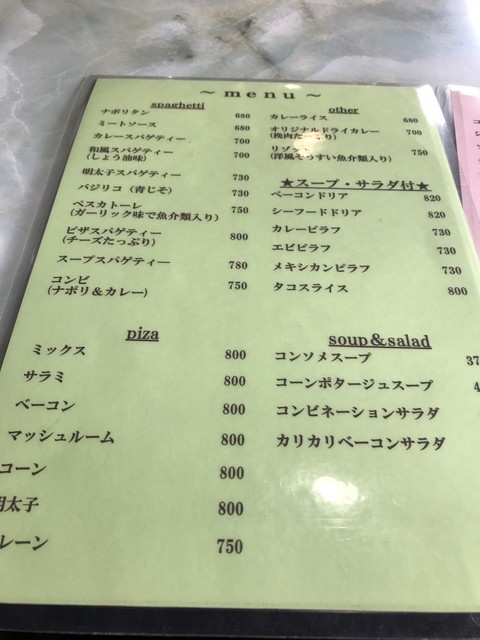 ～ menu ～
spaghetti
ナポリタン 680
ミートソース 680
カレースパゲティー 700
和風スパゲティー 700
(しょう油味)
明太子スパゲティー 730
バジリコ（青じそ） 730
ペスカトーレ 750
(ガーリック味で魚介類入り)
ピザスパゲティー 800
(チーズたっぷり)
スープスパゲティー 780
コンビ 750
(ナポリ＆カレー)
piza
ミックス 800
サラミ 800
ベーコン 800
マッシュルーム 800
コーン 800
明太子 800
レーン 750
other
カレーライス 680
オリジナルドライカレー 700
(挽肉たっぷり)
リゾット 750
(洋風ぞうすい魚介類入り)
★スープ・サラダ付★
ベーコンドリア 820
シーフードドリア 820
カレーピラフ 730
エビピラフ 730
メキシカンピラフ 730
タコスライス 800
soup&salad
コンソメスープ 37
コーンポタージュスープ 4
コンビネーションサラダ
カリカリベーコンサラダ